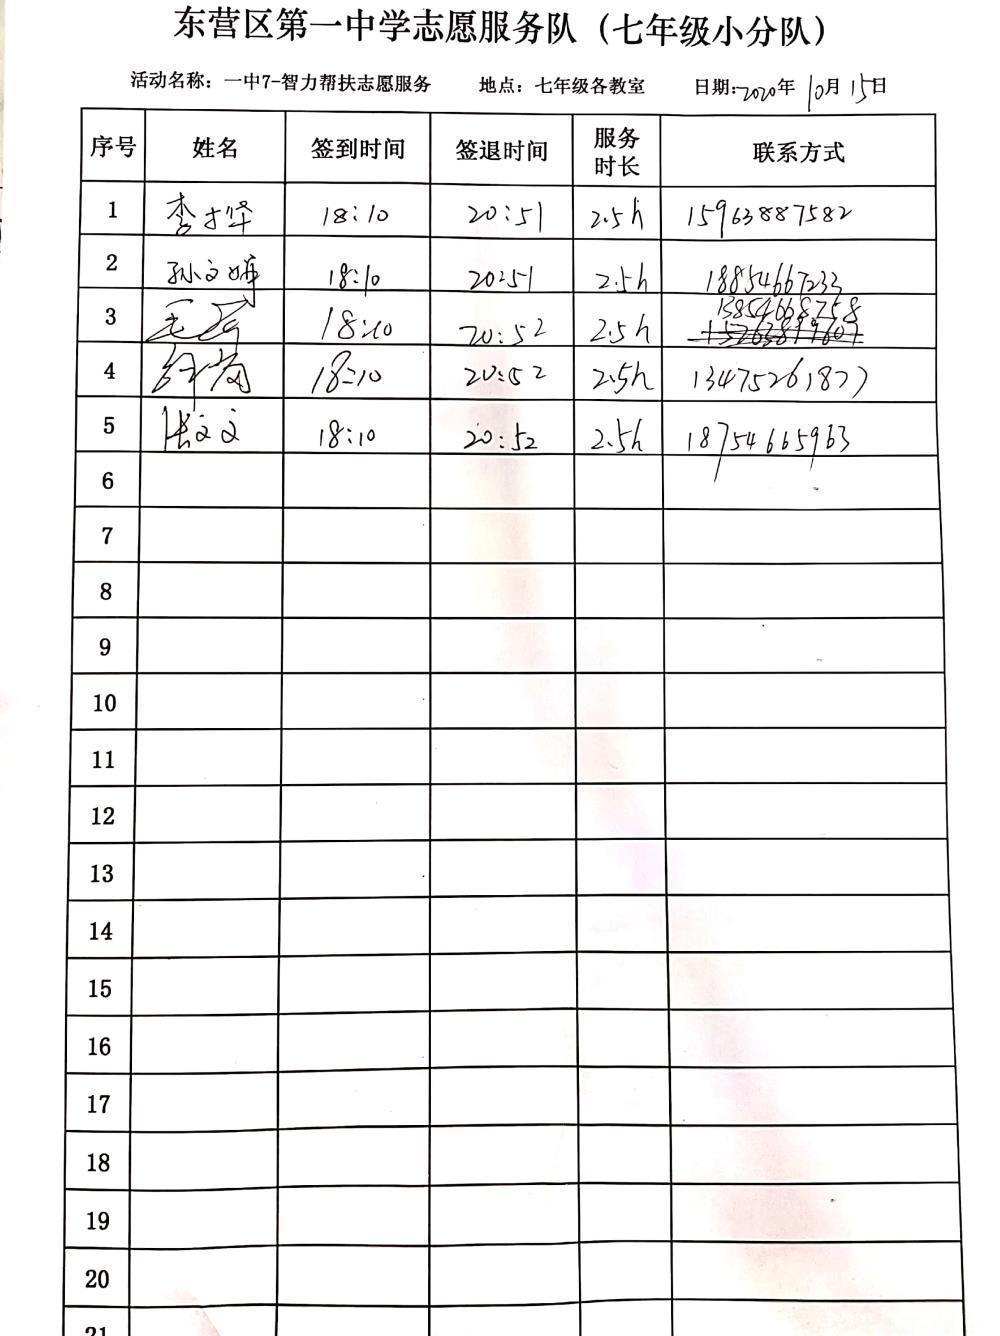 东营区第一中学志愿服务队（七年级小分队）
活动名称：一中7-智力帮扶志愿服务 地点：七年级各教室 日期：2020年10月15日
序号 姓名 签到时间 签退时间 服务时长 联系方式
1 李才华 18:10 20:51 2.5h 15963887582
2 孙文娟 18:10 20:51 2.5h 18854667233
3 18:10 20:52 2.5h 13854668758
4 18:10 20:52 2.5h 13475261877
5 张文文 18:10 20:52 2.5h 18754665963
6
7
8
9
10
11
12
13
14
15
16
17
18
19
20
21